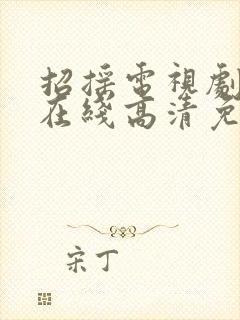 招採電視劇
在綫高清免
宋丁